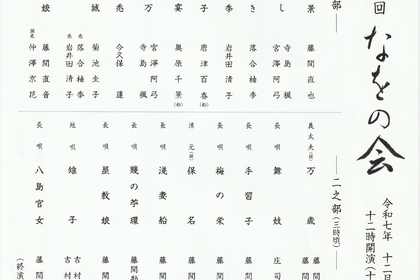 回 なをの会
令和七年 十二
十二時開演(十
部――
景 藤間直也
し 寺島 楓
き 宮澤阿弓
り 落合柚季
季 岩井田清子
子 唐津百香(初)
宴 奥原千景(初)
万 宮澤阿弓
寺島 楓
悉 今久保蓮
城 菊池圭子
落合柚季
岩井田清子
娘 藤間直音
仲澤京花
――二之部(三時頃)――
義太夫(節) 万歳 藤間
長唄 舞妓 庄司
長唄 手習子 藤間
長唄 梅の栄 藤間
清元(節) 保名 藤間
長唄 浅妻船 藤間
長唄 賤の苧環 藤間勘
長唄 屋敷娘 藤間
地唄 雄子 吉村
吉村
長唄 八島官女 藤間勘
(終演